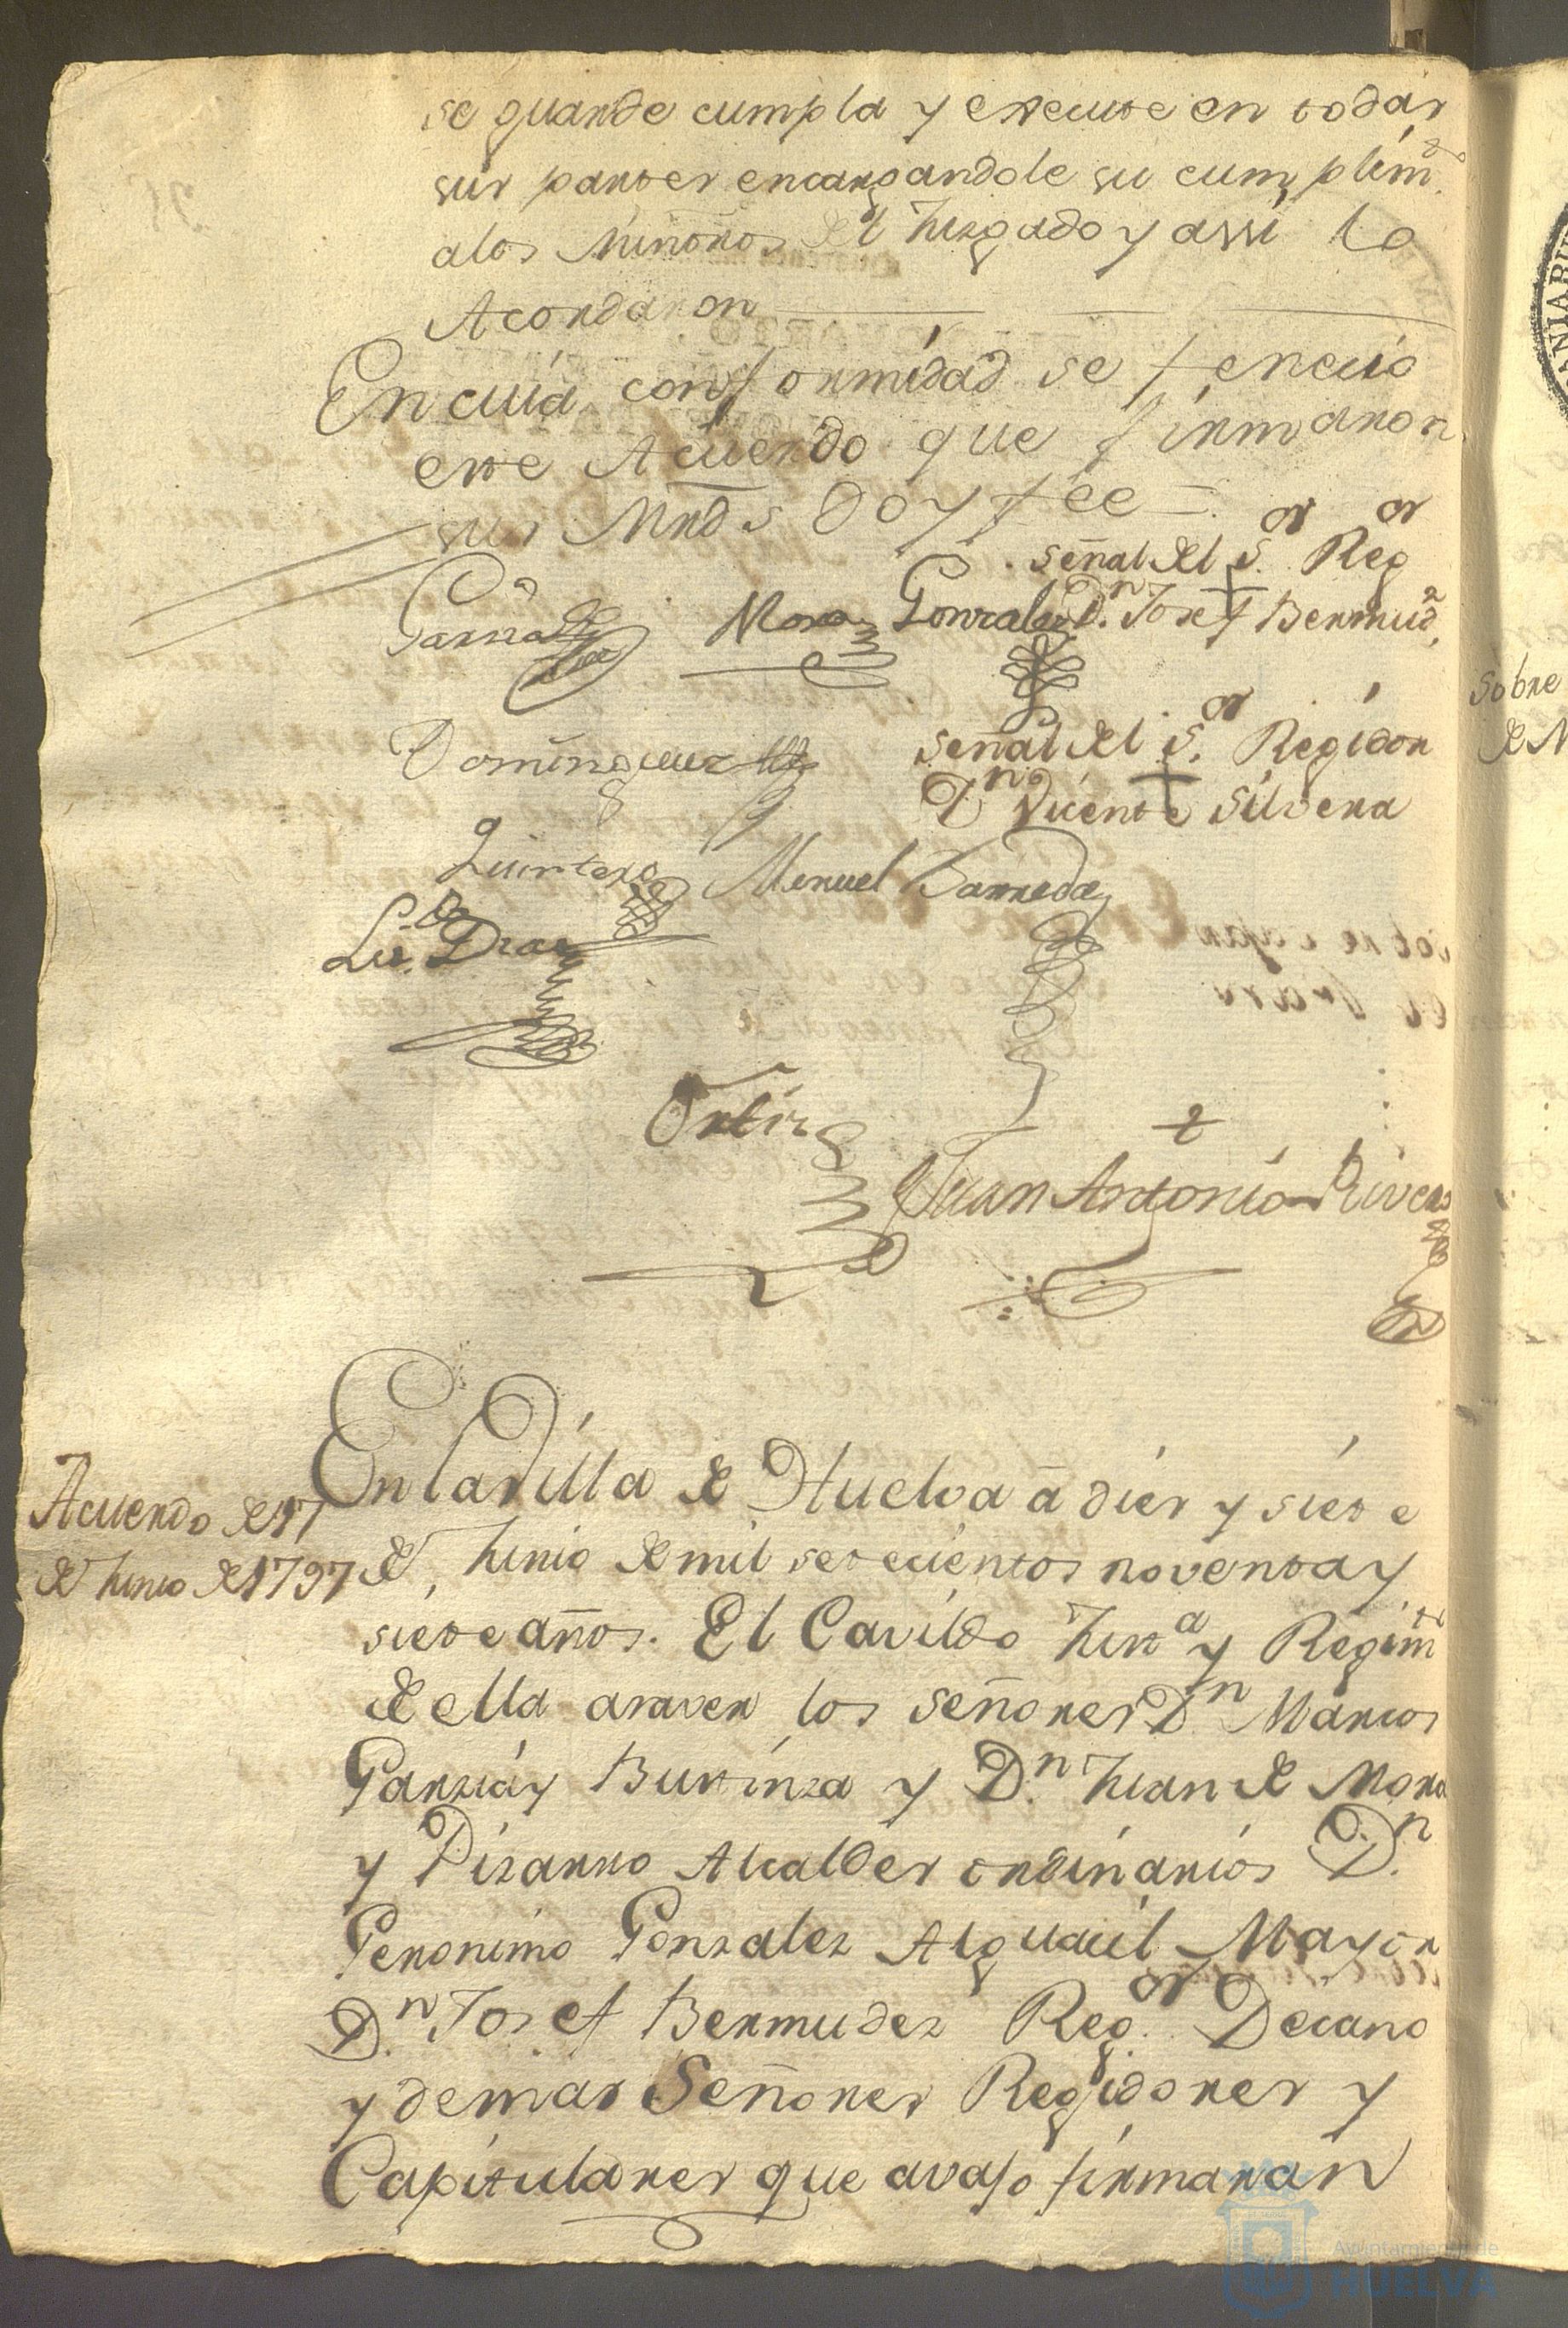 se guarde cumpla y execute en todas
sus partes encargandole su cumplim.to
a los Miñoros del Juzgado y assi lo
Acordaron
En cuia conformidad se fenecio
este Acuerdo que firmaron
sus Mrds Doy fee =
señal del S.or Reg.or
Garzia Mora Gonzalez D.n Josef Bermud.z
señal del S.or Regidor
Dominguez D.n Vicente Silvera
Quintero Manuel Barreda
L.do Diaz
Ortiz
Juan Antonio Rivera
Acuerdo de 17
de Junio de 1797
En la Villa de Huelva â dies y siete
de Junio de mil setecientos noventa y
siete años. El Cavildo Just.a y Regim.to
de ella asaver los señores D.n Marcos
Garzia y Burinza y D.n Juan de Mora
y Pizarro Alcaldes ordinarios D.n
Geronimo Gonzalez Alguacil Mayor
D.n Josef Bermudez Reg.or Decano
y demas Señores Regidores y
Capitulares que avajo firmaran
Sobre
de N
Ayuntamiento de
HUELVA